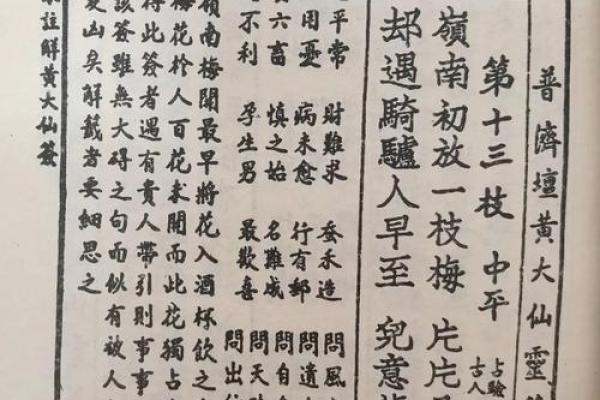 普濟壇黃大仙靈
第十三枝 中平 占驗
古人
嶺南初放一枝梅 片片
却遇騎驢人早至 兒意
平常 財難求 蚕禾造
用憂 病未愈 行有郵
六畜 慎之始 名難成
不利 孕生男 最歡喜
問風
問遺
問自
問天
問出
嶺南梅開最早將花入酒杯飲之
梅花於人百花未開而此花獨占
得此簽者遇有貴人帶引則事事
該簽雖無大碍之句而似有被人
凶矣解籤者要細思之
註解黃大仙簽